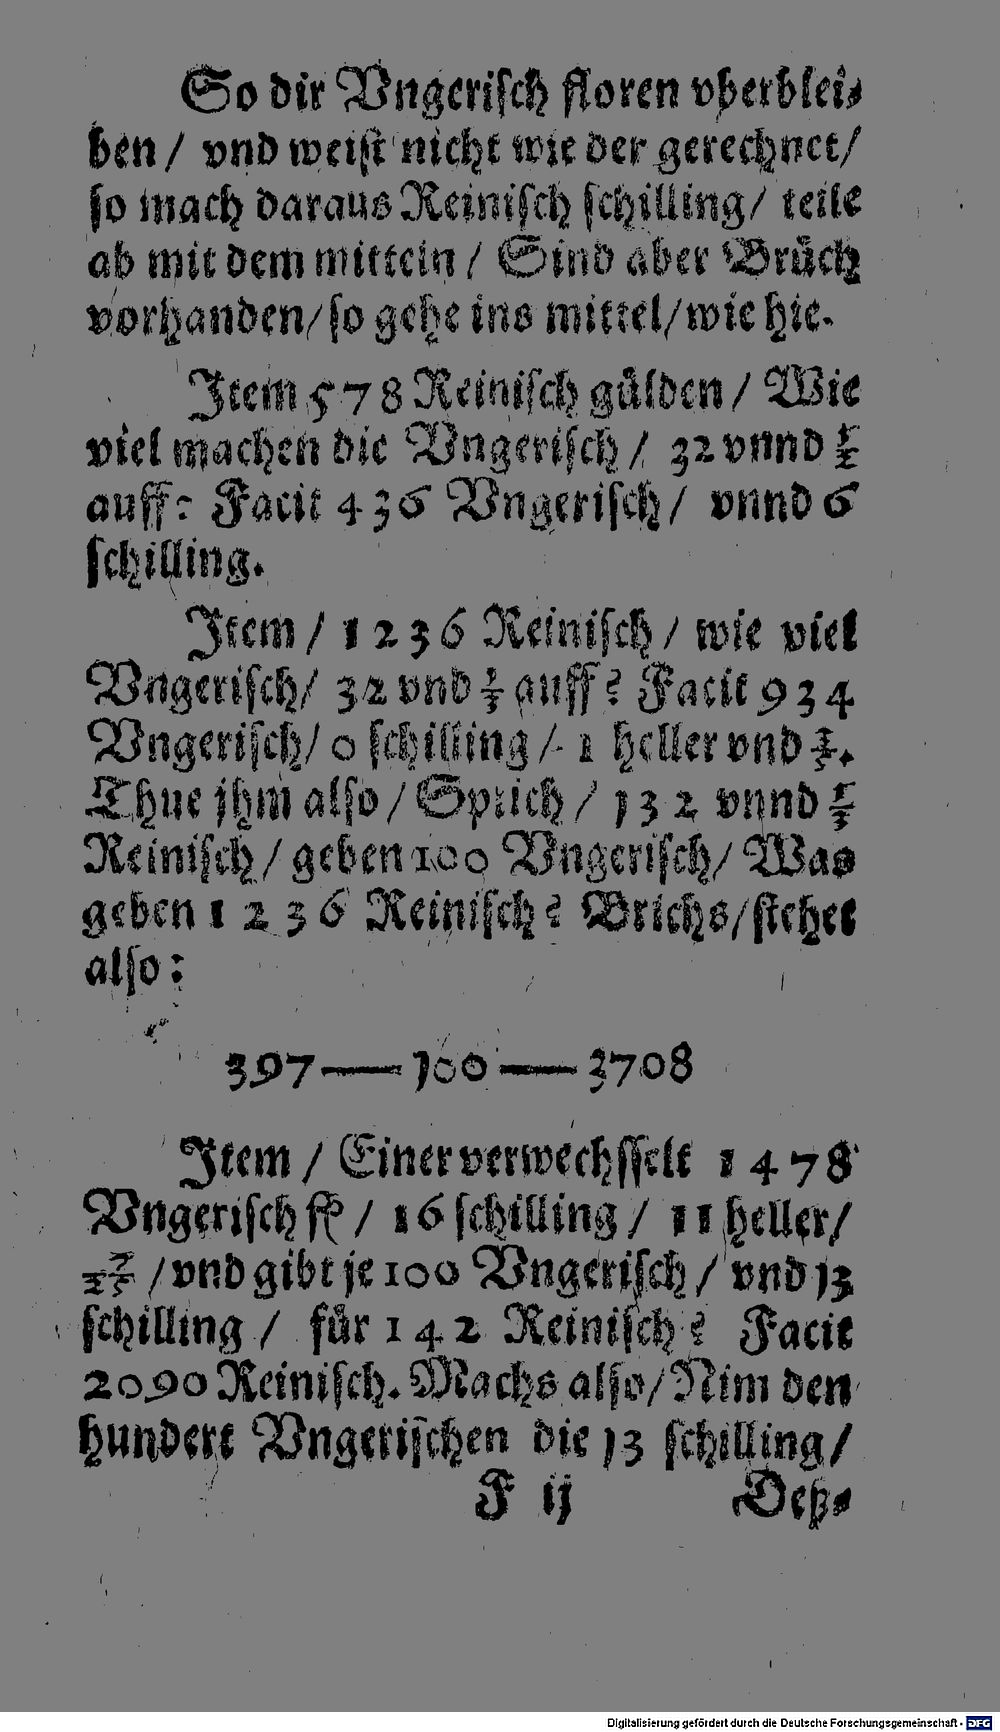 So dir Vngeriſch floren vberblei⸗
ben / vnd weiſt nicht wie der gerechnet /
ſo mach daraus Reiniſch ſchilling / teile
ab mit dem mitteln / Sind aber Bruͤch
vorhanden / ſo gehe ins mittel / wie hie.
Item 578 Reiniſch guͤlden / Wie
viel machen die Vngeriſch / 32 vnnd ½
auff: Facit 436 Vngeriſch / vnnd 6
ſchilling.
Item / 1236 Reiniſch / wie viel
Vngeriſch / 32 vnd ⅓ auff? Facit 934
Vngeriſch / 0 ſchilling / 1 heller vnd
Thue jhm alſo / Sprich / 132 vnnd ⅓
Reiniſch / geben 100 Vngeriſch / Was
geben 1236 Reiniſch? Brichs / ſtehet
alſo:
397 — 100 — 3708
Item / Einer verwechſſelt 1478
Vngeriſch fl / 16 ſchilling / 11 heller /
/ vnd gibt je 100 Vngeriſch / vnd 13
ſchilling / fuͤr 142 Reiniſch? Facit
2090 Reiniſch. Machs alſo / Nim den
hundert Vngeriſchen die 13 ſchilling /
F ij Deß⸗
Digitalisierung gefördert durch die Deutsche Forschungsgemeinschaft - DFG